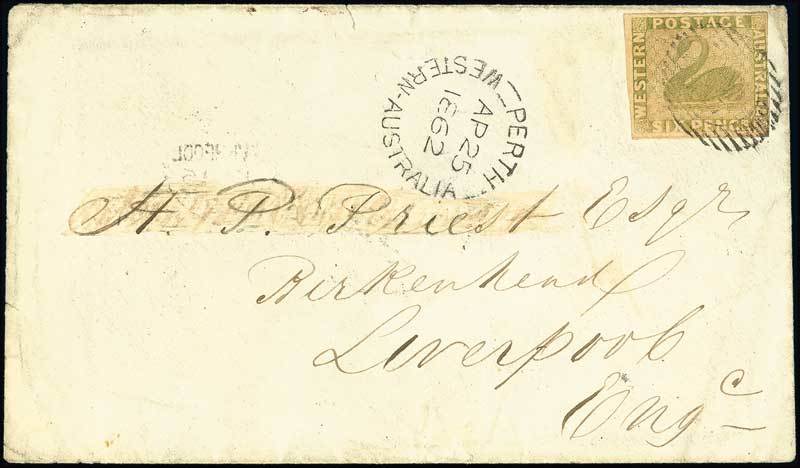 WESTERN POSTAGE AUSTRALIA
SIX PENCE
PERTH
AP 25
1862
WESTERN-AUSTRALIA
H. P. Priest Esqr
Birkenhead
Liverpool
Engc